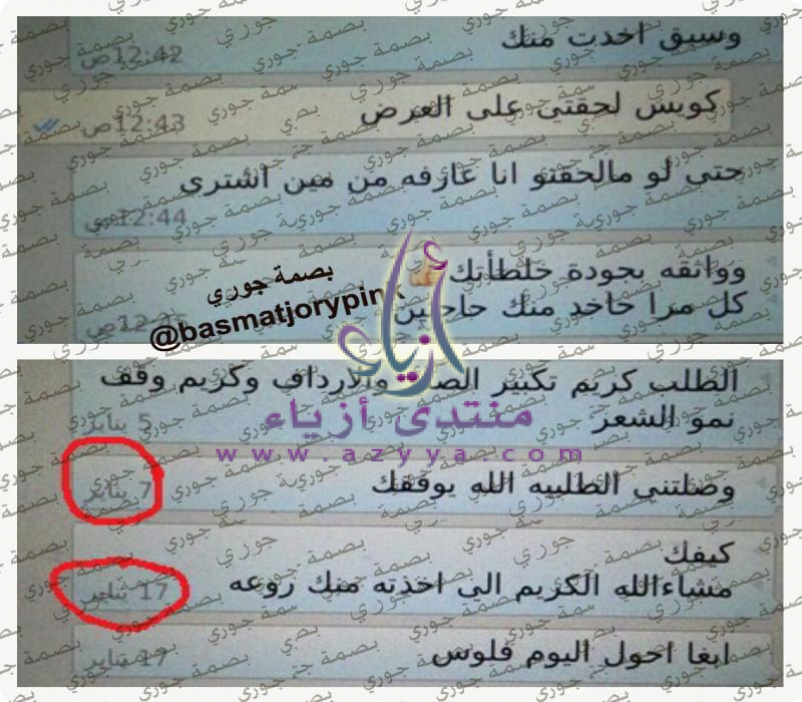 وسبق اخدت منك
12:42ص
كويس لحقتي على العرض
12:43ص
حتى لو مالحقتو انا عارفه من مين اشتري
12:44ص
وواثقه بجودة خلطأتك
كل مرا حاخد منك حاجتين
بصمة جوري
@basmatjorypink
أزياء
الطلب كريم تكبير والارداف وكريم وقف
نمو الشعر
5 يناير
منتدى أزياء
www.azyya.com
وصلتني الطلبيه الله يوفقك
7 يناير
كيفك
مشاءالله الكريم الى اخذته منك روعه
17 يناير
ابغا احول اليوم فلوس
17 يناير